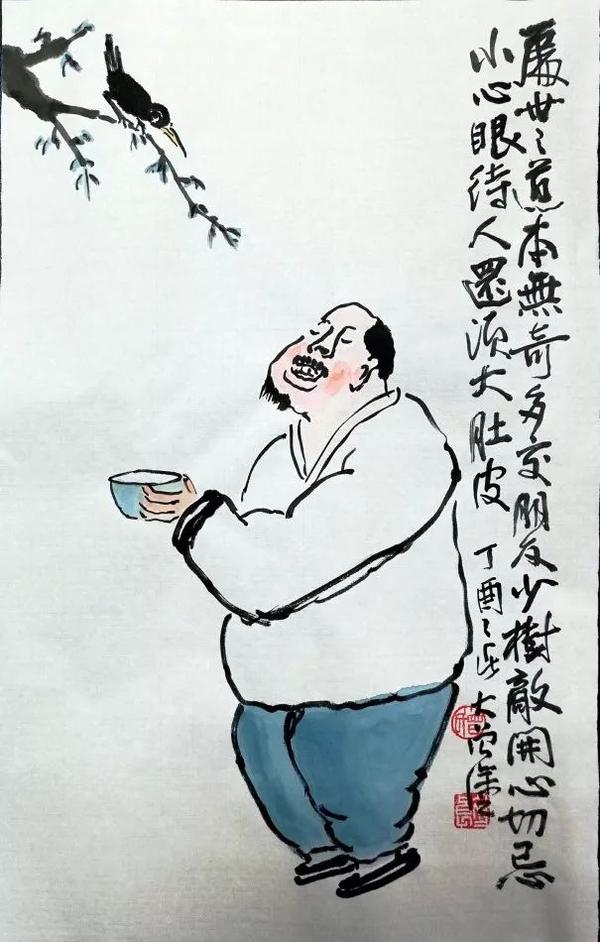 處世之道本無奇多交朋友少樹敵開心切忌
小心眼待人還須大肚皮 丁酉之 大